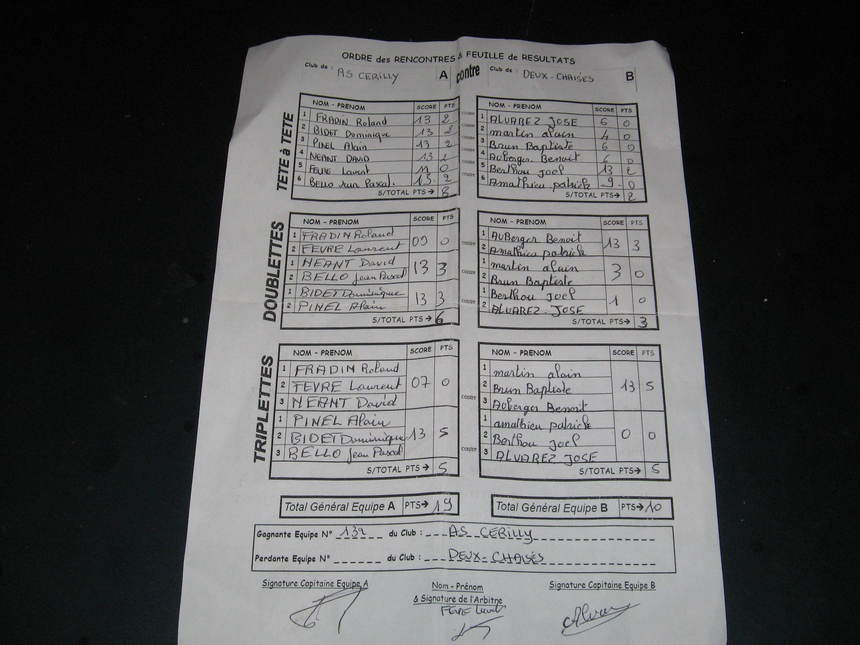 ORDRE des RENCONTRES & FEUILLE de RESULTATS
Club de : AS CERILLY A contre Club de : DEUX-CHAISES B
TETE à TETE
NOM - PRENOM SCORE PTS NOM - PRENOM SCORE PTS
1 FRADIN Roland 13 2 contre 1 ALVAREZ JOSE 6 0
2 BIDET Dominique 13 2 contre 2 martin alain 4 0
3 PINEL Alain 13 2 contre 3 Brun Baptiste 6 0
4 NEANT DAVID 13 2 contre 4 Auberger Benoit 6 0
5 FEVRE Laurent 11 0 contre 5 Berthou joel 13 2
6 BELLO Jean Pascal. 13 2 contre 6 Amathieu patrick 9 0
S/TOTAL PTS→ 8 S/TOTAL PTS→ 2
DOUBLETTES
NOM - PRENOM SCORE PTS NOM - PRENOM SCORE PTS
1 FRADIN Roland 09 0 contre 1 AUBerger Benoit 13 3
2 FEVRE Laurent 2 Amathieu patrick
1 NEANT David 13 3 contre 1 martin alain 3 0
2 BELLO Jean Pascal 2 Brun Baptiste
1 BIDET Dominique 13 3 contre 1 Berthou Joel 1 0
2 PINEL Alain 2 ALVAREZ JOSE
S/TOTAL PTS→ 6 S/TOTAL PTS→ 3
TRIPLETTES
NOM - PRENOM SCORE PTS NOM - PRENOM SCORE PTS
1 FRADIN Roland 1 martin alain
2 FEVRE Laurent 07 0 contre 2 Brun Baptiste 13 5
3 NEANT David 3 Auberger Benoit
1 PINEL Alain 1 amathieu patrick
2 BIDET Dominique 13 5 contre 2 Berthou Joel 0 0
3 BELLO Jean Pascal 3 ALVAREZ JOSE
S/TOTAL PTS→ 5 S/TOTAL PTS→ 5
Total Général Equipe A PTS→ 19 Total Général Equipe B PTS→ 10
Gagnante Equipe N° 132 du Club : AS CERILLY
Perdante Equipe N° du Club : DEUX-CHAISES
Signature Capitaine Equipe A Nom - Prénom Signature Capitaine Equipe B
& Signature de l'Arbitre
FEVRE Laurent